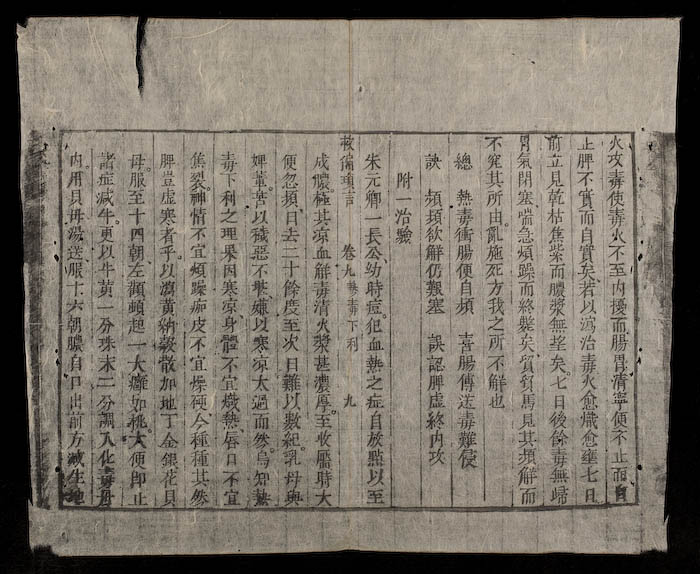 火攻毒使毒火不至內擾而腸胃清寧便不止而自
止脾不實而自實矣若以瀉治毒火愈熾愈壅七日
前立見乾枯焦紫而膿漿無望矣七日後餘毒無歸
胃氣閉塞喘急煩躁而終斃矣貿貿焉見其頻解而
不究其所由亂施死方我之所不解也
總　熱毒衝腸便自頻　喜腸傳送毒難侵
訣　頻頻欲解仍艱塞　誤認脾虛終內攻
附一治驗
朱元卿一長公幼時痘犯血熱之症自放點以至
救偏瑣言　卷九熱毒下利　九
成膿極其涼血解毒清火漿甚濃厚至收靨時大
便忽頻日去二十餘度至次日難以數紀乳母與
婢輩苦以穢惡不堪嫌以寒涼太過而然烏知熱
毒下利之理果因寒涼身體不宜熾熱唇口不宜
焦裂神情不宜煩躁痂皮不宜燥硬今種種其然
脾豈虛寒者乎以瀉黃納穀散加地丁金銀花貝
母服至十四朝左顴頰起一大癰如桃大便即止
諸症減半更以牛黃一分珠末二分調入化毒丹
內用貝母湯送服十六朝膿自口出前方減生地